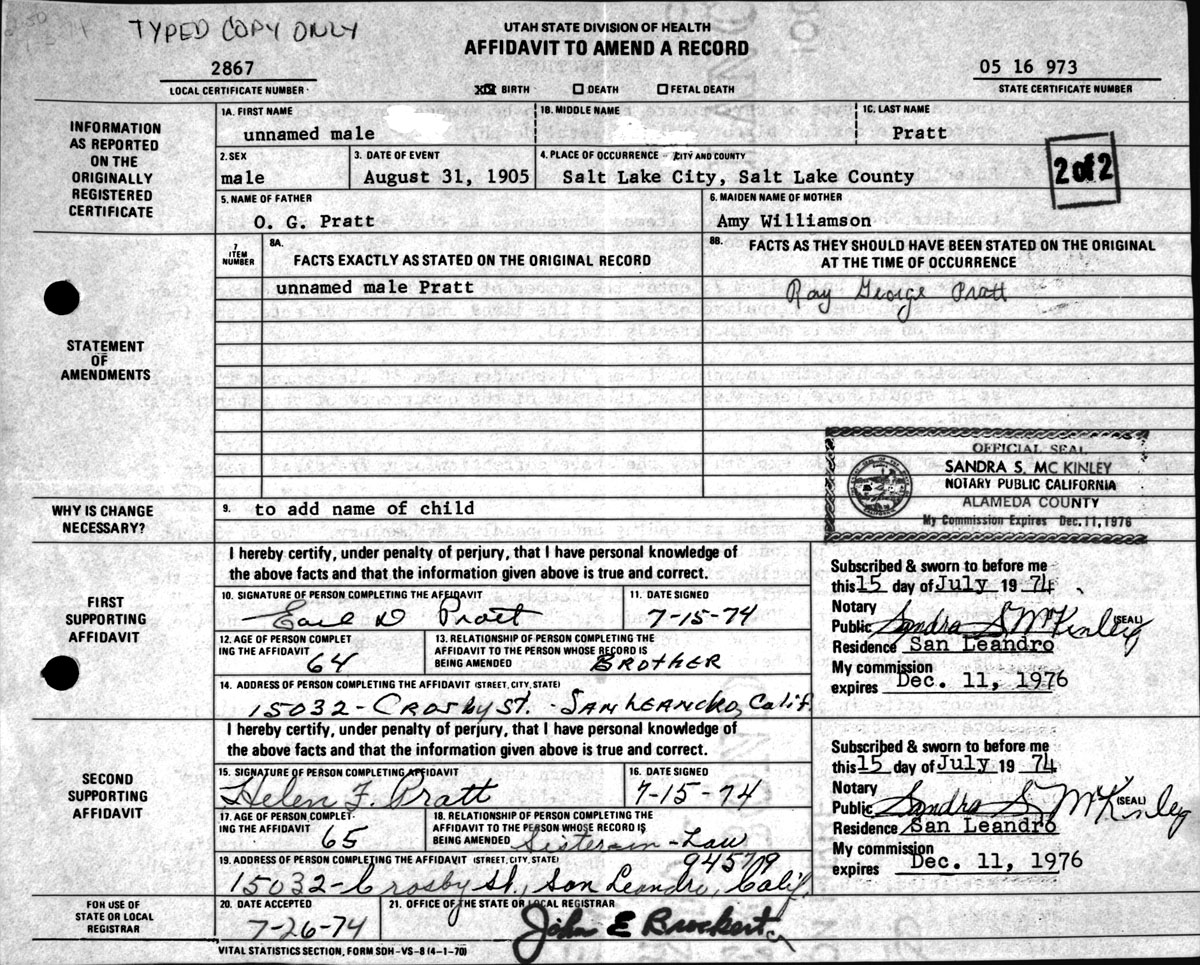 TYPED COPY ONLY
UTAH STATE DIVISION OF HEALTH
AFFIDAVIT TO AMEND A RECORD
2867
LOCAL CERTIFICATE NUMBER
XX BIRTH DEATH FETAL DEATH
05 16 973
STATE CERTIFICATE NUMBER
INFORMATION
AS REPORTED
ON THE
ORIGINALLY
REGISTERED
CERTIFICATE
1A. FIRST NAME
unnamed male
1B. MIDDLE NAME
1C. LAST NAME
Pratt
2. SEX
male
3. DATE OF EVENT
August 31, 1905
4. PLACE OF OCCURRENCE - CITY AND COUNTY
Salt Lake City, Salt Lake County
2 of 2
5. NAME OF FATHER
O. G. Pratt
6. MAIDEN NAME OF MOTHER
Amy Williamson
STATEMENT
OF
AMENDMENTS
7
ITEM
NUMBER
8A.
FACTS EXACTLY AS STATED ON THE ORIGINAL RECORD
8B.
FACTS AS THEY SHOULD HAVE BEEN STATED ON THE ORIGINAL
AT THE TIME OF OCCURRENCE
unnamed male Pratt
Ray George Pratt
OFFICIAL SEAL
SANDRA S. MC KINLEY
NOTARY PUBLIC CALIFORNIA
ALAMEDA COUNTY
My Commission Expires Dec. 11, 1976
WHY IS CHANGE
NECESSARY?
9. to add name of child
FIRST
SUPPORTING
AFFIDAVIT
I hereby certify, under penalty of perjury, that I have personal knowledge of
the above facts and that the information given above is true and correct.
10. SIGNATURE OF PERSON COMPLETING THE AFFIDAVIT
Earl D Pratt
11. DATE SIGNED
7-15-74
12. AGE OF PERSON COMPLET
ING THE AFFIDAVIT
64
13. RELATIONSHIP OF PERSON COMPLETING THE
AFFIDAVIT TO THE PERSON WHOSE RECORD IS
BEING AMENDED
BROTHER
14. ADDRESS OF PERSON COMPLETING THE AFFIDAVIT (STREET, CITY, STATE)
15032-CROSBY ST. - SAN LEANDRO, Calif.
Subscribed & sworn to before me
this 15 day of July 19 74
Notary
Public Sandra S McKinley (SEAL)
Residence San Leandro
My commission
expires Dec. 11, 1976
SECOND
SUPPORTING
AFFIDAVIT
I hereby certify, under penalty of perjury, that I have personal knowledge of
the above facts and that the information given above is true and correct.
15. SIGNATURE OF PERSON COMPLETING AFFIDAVIT
Helen F. Pratt
16. DATE SIGNED
7-15-74
17. AGE OF PERSON COMPLET-
ING THE AFFIDAVIT
65
18. RELATIONSHIP OF PERSON COMPLETING THE
AFFIDAVIT TO THE PERSON WHOSE RECORD IS
BEING AMENDED
Sister-in-Law
19. ADDRESS OF PERSON COMPLETING THE AFFIDAVIT (STREET, CITY, STATE)
15032-Crosby St., San Leandro, Calif.
Subscribed & sworn to before me
this 15 day of July 19 74
Notary
Public Sandra S McKinley (SEAL)
Residence San Leandro
My commission
expires Dec. 11, 1976
FOR USE OF
STATE OR LOCAL
REGISTRAR
20. DATE ACCEPTED
7-26-74
21. OFFICE OF THE STATE OR LOCAL REGISTRAR
John E Brockert
VITAL STATISTICS SECTION, FORM SDH-VS-8 (4-1-70)